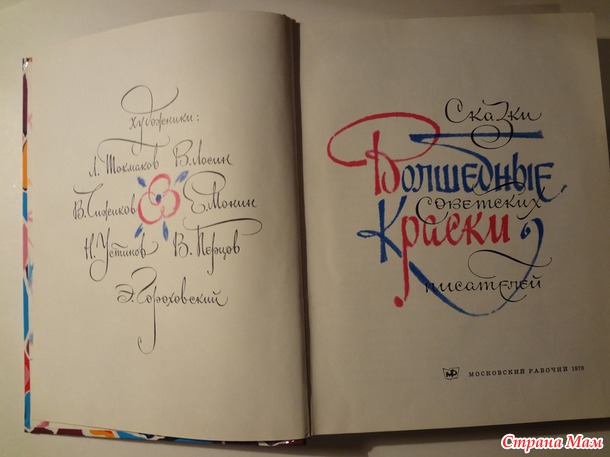 Художники:
Л. Токмаков В. Лосин
В. Чижиков Е. Монин
Н. Устинов В. Перцов
Э. Гороховский
Сказки
Волшебные
Советских
Краски
писателей
МР МОСКОВСКИЙ РАБОЧИЙ 1979
Страна Мам